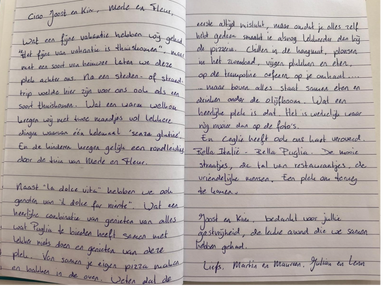 Ciao Joost en Kim, Merle en Fleur,
Wat een fijne vakantie hebben wij gehad
"Het fijne van vakantie is thuiskomen".. maar
met een soort van heimwee laten we deze
plek achter ons. Na een steden- of strand
trip voelde hier zijn voor ons ook als een
soort thuiskomen. Wat een warm welkom
kregen wij met twee mandjes vol lekkere
dingen waarvan één helemaal 'senza glutine'.
En de kinderen kregen gelijk een rondleiding
door de tuin van Merle en Fleur.
Naast "la dolce vita" hebben we ook
genoten van 'il dolce far niente'. Wat een
heerlijke combinatie van genieten van alles
wat Puglia te bieden heeft samen met
lekker niets doen en genieten van deze
plek. Van samen je eigen pizza maken
en bakken in de oven. Weten dat de
eerste altijd mislukt, maar omdat je alles zelf
hebt gedaan smaakt ie alsnog lekkerder dan bij
de pizzeria. Chillen in de hangmat, plonsen
in het zwembad, vijgen plukken en eten
op de trampoline oefenen op je
maar boven alles staat samen eten en
drinken onder de olijfboom. Wat een
heerlijke plek is dat. Het is werkelijk waar
nóg mooier dan op de foto's.
En Ceglie heeft ook ons hart veroverd
Bella Italië - Bella Puglia. De mooie
straatjes, de tal van restaurantjes, de
vriendelijke mensen. Een plek om terug
te komen.
Joost en Kim, bedankt voor jullie
gastvrijheid, die leuke avond die we samen
hebben gehad.
Liefs, Martin en Maureen, Julian en Lenn